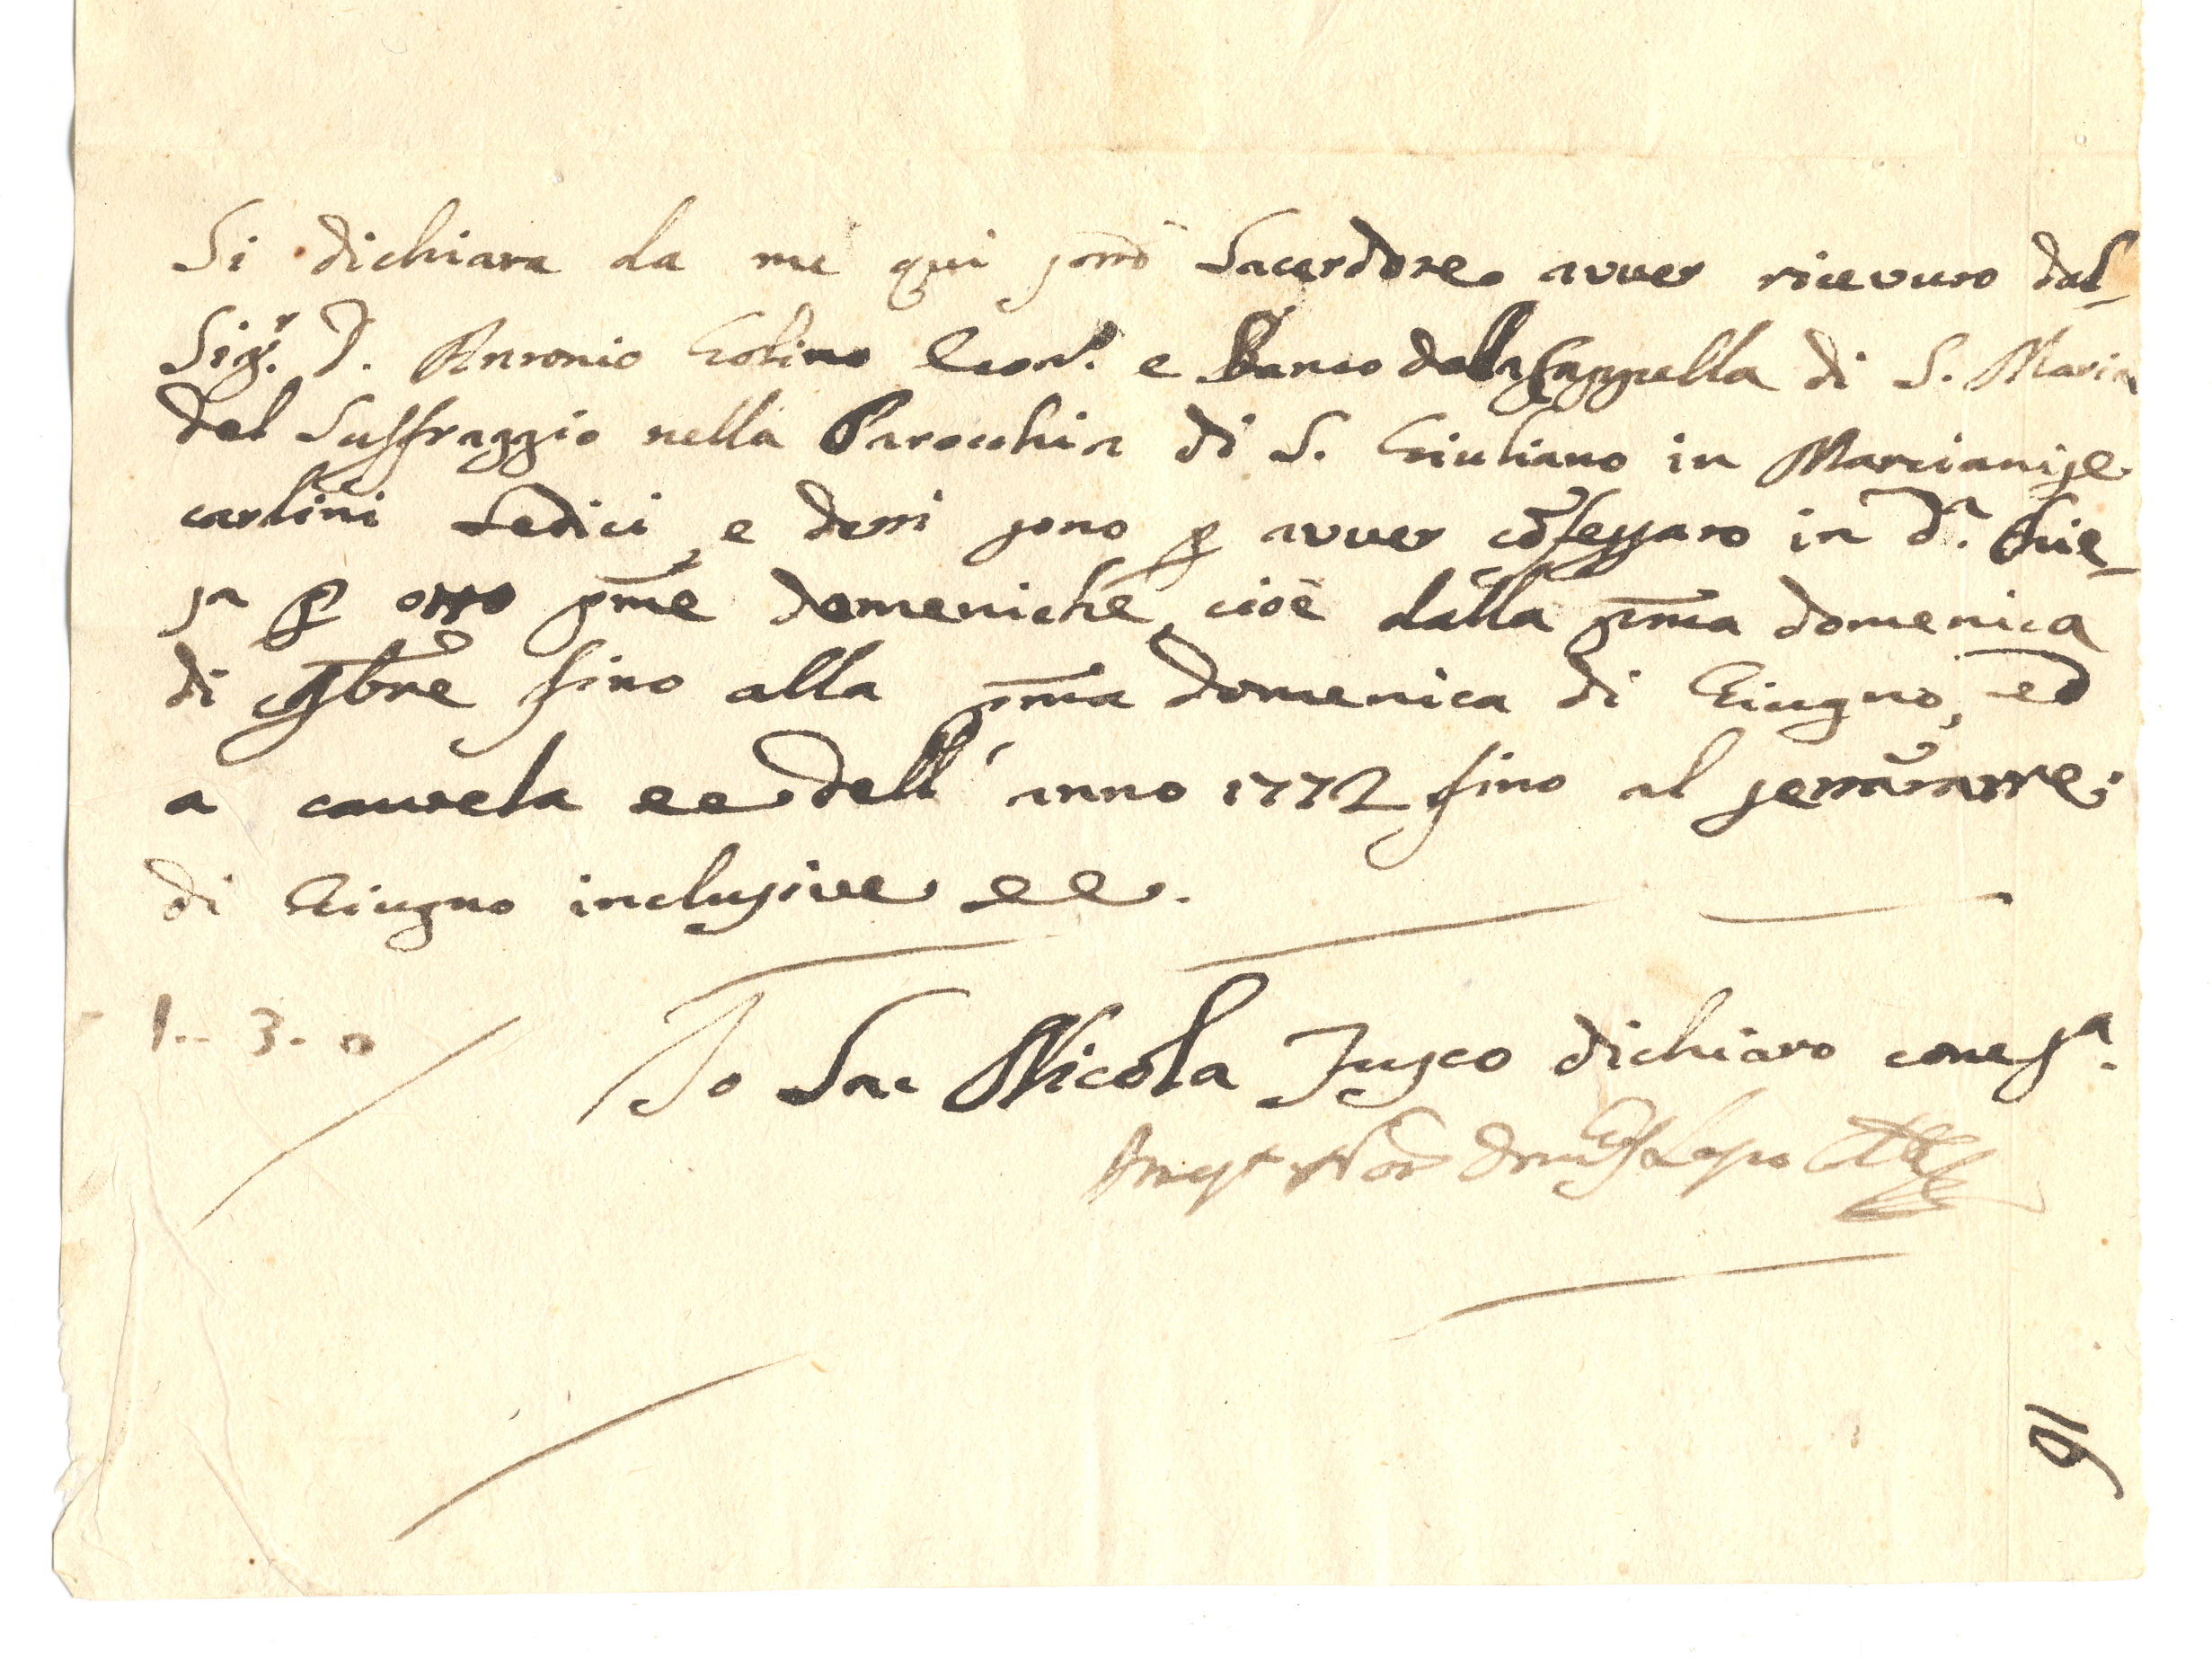 Si dichiara da me qui sottō Sacerdote avver ricevuto dal-
Sig.r D. Antonio Golino Econ.o e Banco della Cappella di S. Maria
del Suffraggio nella Parocchia di S. Giuliano in Marcianise
carlini sedici, e detti sono p avver cōfessato in d.a Chie-
sa p otto pm̄e domeniche, cioè dalla pm̄a domenica
di 9bre fino alla pm̄a domenica di Giugno, ed
a cautela ee dell' anno 1772 fino al settātatre
di Giugno inclusive ee.
1.. 3. 0
Io Sac Nicola Fusco dichiaro come s.a
9